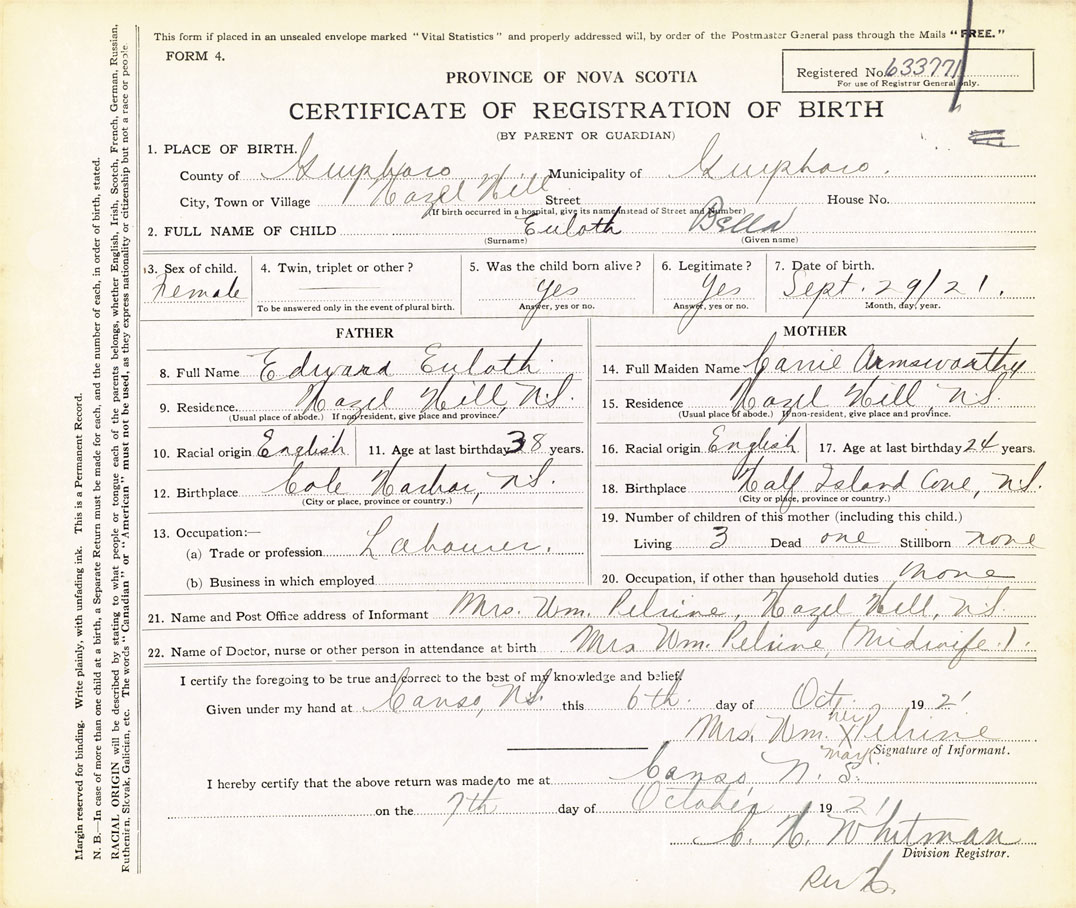 This form if placed in an unsealed envelope marked "Vital Statistics" and properly addressed will, by order of the Postmaster General pass through the Mails "FREE."
FORM 4.
Registered No. 633771
For use of Registrar General only.
PROVINCE OF NOVA SCOTIA
CERTIFICATE OF REGISTRATION OF BIRTH
(BY PARENT OR GUARDIAN)
1. PLACE OF BIRTH.
County of Guysboro Municipality of Guysboro.
City, Town or Village Hazel Hill Street House No.
(If birth occurred in a hospital, give its name instead of Street and Number)
2. FULL NAME OF CHILD Euloth Bella
(Surname) (Given name)
3. Sex of child. 4. Twin, triplet or other? 5. Was the child born alive? 6. Legitimate? 7. Date of birth.
Female Yes Yes Sept. 29/21.
To be answered only in the event of plural birth. Answer, yes or no. Answer, yes or no. Month, day, year.
FATHER
8. Full Name Edward Euloth
9. Residence. Hazel Hill, N.S.
(Usual place of abode.) If non-resident, give place and province.
10. Racial origin English 11. Age at last birthday 38 years.
12. Birthplace Cole Harbor, N.S.
(City or place, province or country.)
13. Occupation:—
(a) Trade or profession Labourer.
(b) Business in which employed
MOTHER
14. Full Maiden Name Carrie Armsworthy
15. Residence Hazel Hill, N.S.
(Usual place of abode.) If non-resident, give place and province.
16. Racial origin English 17. Age at last birthday 24 years.
18. Birthplace Half Island Cove, N.S.
(City or place, province or country.)
19. Number of children of this mother (including this child.)
Living 3 Dead one Stillborn none
20. Occupation, if other than household duties none
21. Name and Post Office address of Informant Mrs. Wm. Pelrine, Hazel Hill, N.S.
22. Name of Doctor, nurse or other person in attendance at birth Mrs Wm. Pelrine, (Midwife.).
I certify the foregoing to be true and correct to the best of my knowledge and belief.
Given under my hand at Canso, N.S. this 6th. day of Oct. 1921
her
Mrs. Wm. X Pelrine
mark. Signature of Informant.
I hereby certify that the above return was made to me at Canso N.S.
on the 7th day of October 1921
C. H. Whitman
Division Registrar.
Margin reserved for binding. Write plainly, with unfading ink. This is a Permanent Record.
N. B.—In case of more than one child at a birth, a Separate Return must be made for each, and the number of each, in order of birth, stated.
RACIAL ORIGIN will be described by stating to what people or tongue each of the parents belongs, whether English, Irish, Scotch, French, German, Russian,
Ruthenian, Slovak, Galician, etc. The words "Canadian" or "American" must not be used, as they express nationality or citizenship but not a race or people.